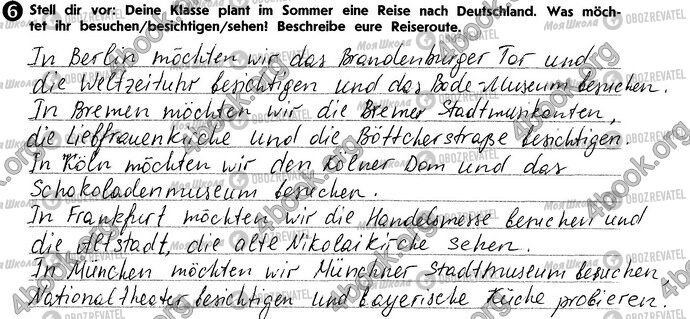 6 Stell dir vor: Deine Klasse plant im Sommer eine Reise nach Deutschland. Was möch-
tet ihr besuchen/besichtigen/sehen? Beschreibe eure Reiseroute.
In Berlin möchten wir das Brandenburger Tor und
die Weltzeituhr besichtigen und das Bode-Museum besuchen.
In Bremen möchten wir die Bremer Stadtmusikanten,
die Liebfrauenkirche und die Böttcherstraße besichtigen.
In Köln möchten wir den Kölner Dom und das
Schokoladenmuseum besuchen.
In Frankfurt möchten wir die Handelsmesse besuchen und
die Altstadt, die alte Nikolaikirche sehen.
In München möchten wir Münchner Stadtmuseum besuchen,
Nationaltheater besichtigen und bayerische Küche probieren.